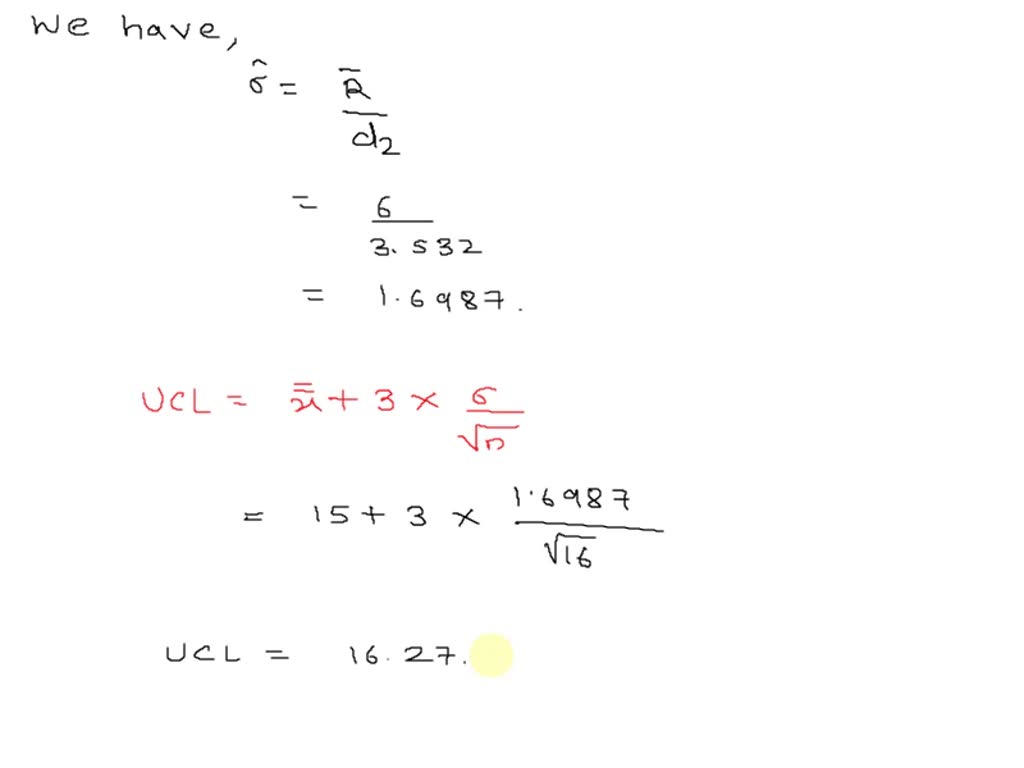 We have,
σ̂ = R̄ / d₂
= 6 / 3.532
= 1.6987.
UCL = x̿ + 3 × σ / √n
= 15 + 3 × 1.6987 / √16
UCL = 16.27.